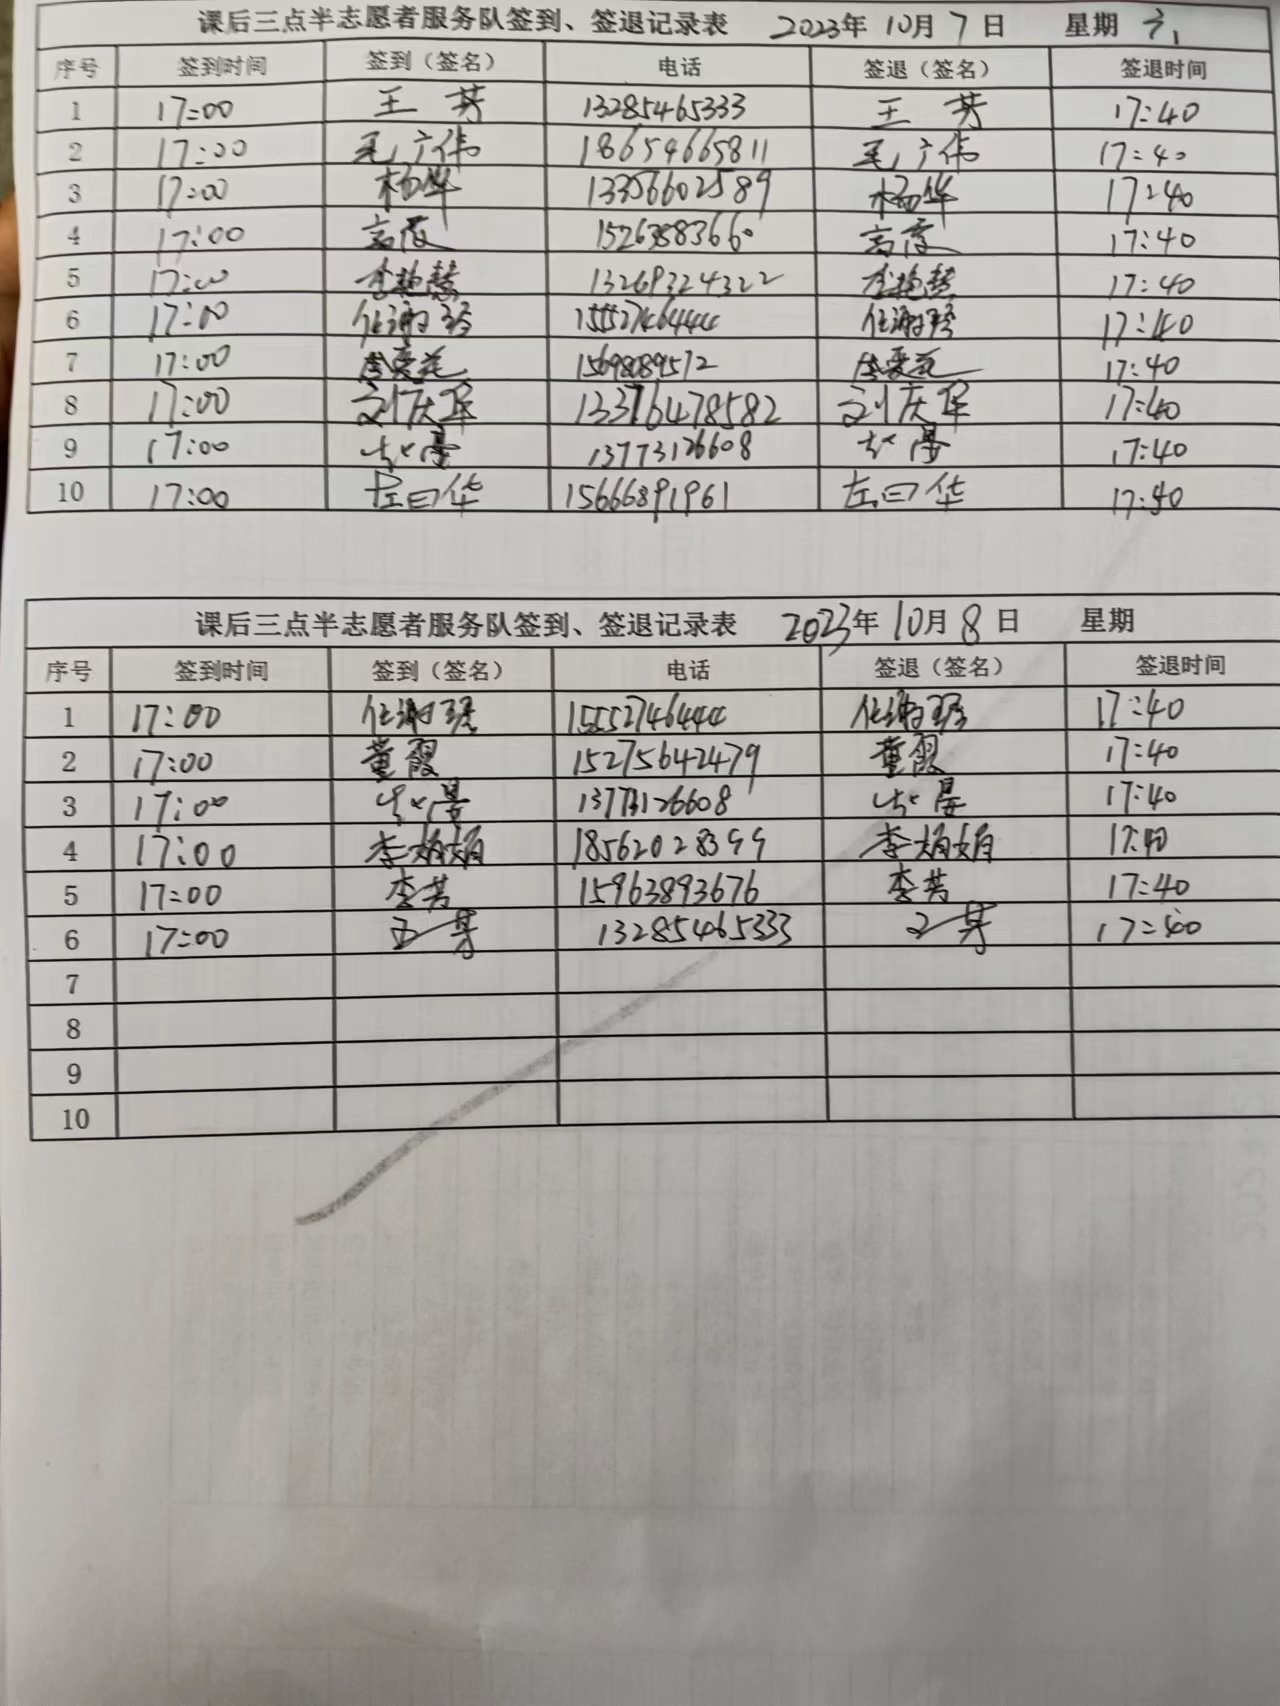 课后三点半志愿者服务队签到、签退记录表 2023年 10月 7日 星期
序号 签到时间 签到（签名） 电话 签退（签名） 签退时间
1 17:00 王芳 13285465333 王芳 17:40
2 17:00 毛广伟 18654665811 毛广伟 17:40
3 17:00 杨华 13356602589 杨华 17:40
4 17:00 高霞 17:40
5 17:00 李艳慧 13269324322 李艳慧 17:40
6 17:00 15552746444 17:40
7 17:00 李爱花 15698089572 李爱花 17:40
8 17:00 刘庆军 13376478582 刘庆军 17:40
9 17:00 赵晏 13773126608 赵晏 17:40
10 17:00 左曰华 15666891961 左曰华 17:40
课后三点半志愿者服务队签到、签退记录表 2023年 10月 8日 星期
序号 签到时间 签到（签名） 电话 签退（签名） 签退时间
1 17:00 15552746444 17:40
2 17:00 董霞 15275642479 董霞 17:40
3 17:00 赵晏 13773126608 赵晏 17:40
4 17:00 李娟娟 18562028399 李娟娟 17:40
5 17:00 李芳 15963893676 李芳 17:40
6 17:00 王芳 13285465333 王芳 17:40
7
8
9
10